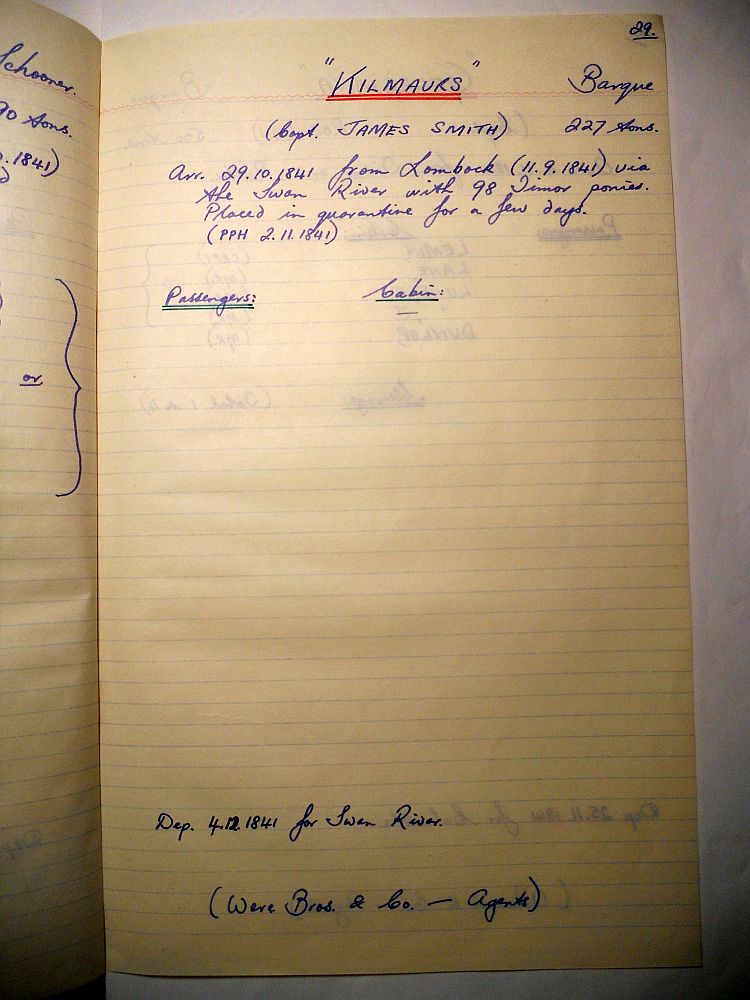 Schooner.
90 tons.
.1841)
or
29.
"KILMAURS" Barque
(Capt. JAMES SMITH) 227 tons.
Arr. 29.10.1841 from Lombock (11.9.1841) via
the Swan River with 98 Timor ponies.
Placed in quarantine for a few days.
(PPH 2.11.1841)
Passengers: Cabin:
—
Dep. 4.12.1841 for Swan River.
(Were Bros. & Co. — Agents)